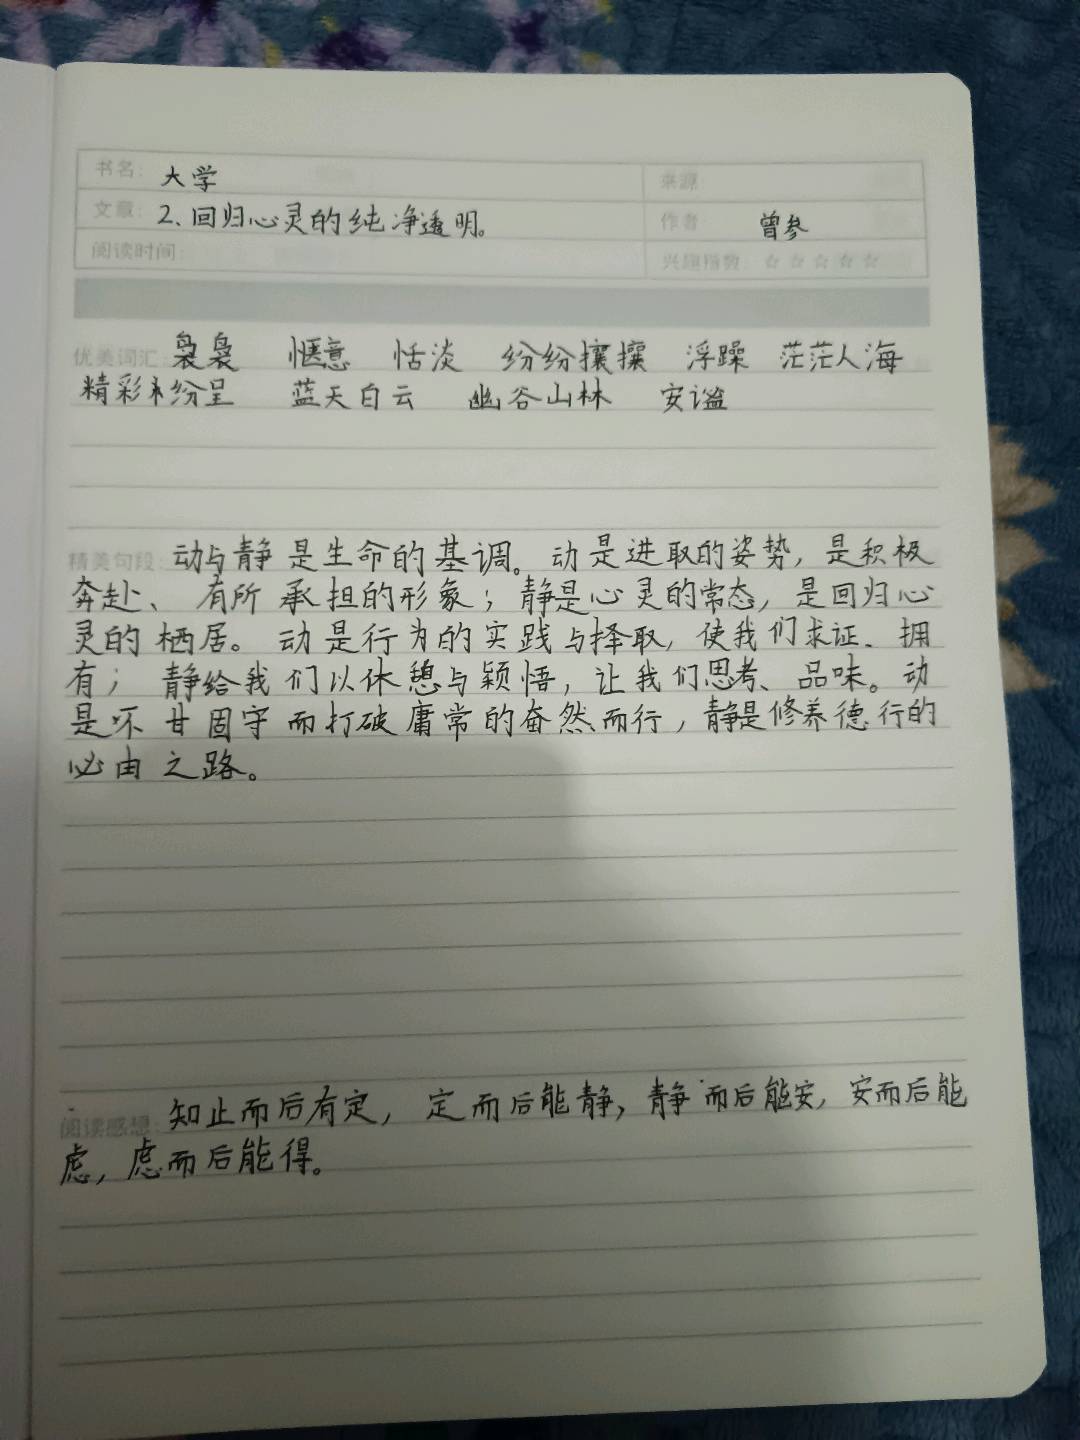 书名：大学 来源
文章：2、回归心灵的纯净透明。 作者 曾参
阅读时间： 兴趣指数 ☆☆☆☆☆
优美词汇：袅袅 惬意 恬淡 纷纷攘攘 浮躁 茫茫人海
精彩纷呈 蓝天白云 幽谷山林 安谧
精美句段：动与静是生命的基调。动是进取的姿势，是积极
奔赴、有所承担的形象；静是心灵的常态，是回归心
灵的栖居。动是行为的实践与择取，使我们求证、拥
有；静给我们以休憩与颖悟，让我们思考、品味。动
是不甘固守而打破庸常的奋然而行，静是修养德行的
必由之路。
阅读感想：知止而后有定，定而后能静，静而后能安，安而后能
虑，虑而后能得。